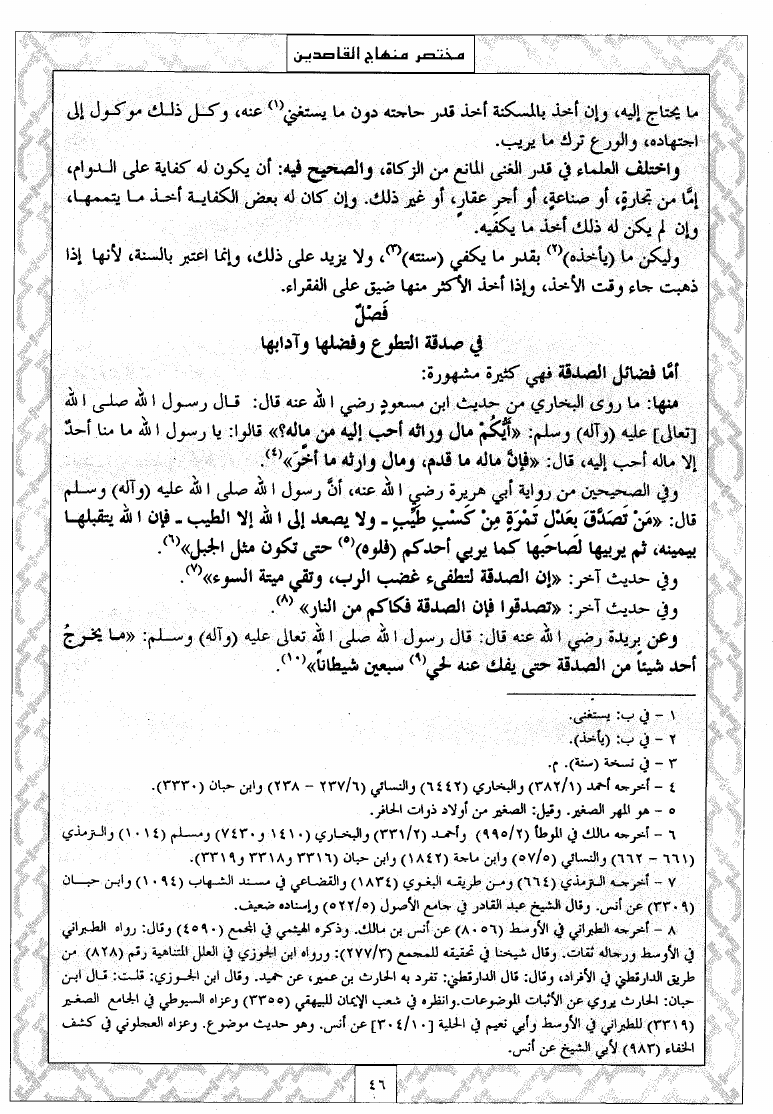 مختصر منهاج القاصدين
ما يحتاج إليه، وإن أخذ بالمسكنة أخذ قدر حاجته دون ما يستغني(١) عنه، وكل ذلك موكول إلى
اجتهاده، والورع ترك ما يريب.
واختلف العلماء في قدر الغنى المانع من الزكاة، والصحيح فيه: أن يكون له كفاية على الدوام،
إمَّا من تجارةٍ، أو صناعةٍ، أو أجرِ عقارٍ، أو غير ذلك. وإن كان له بعض الكفاية أخذ ما يتممها،
وإن لم يكن له ذلك أخذ ما يكفيه.
وليكن ما (يأخذه)(٢) بقدر ما يكفي (سنته)(٣)، ولا يزيد على ذلك، وإنما اعتبر بالسنة، لأنها إذا
ذهبت جاء وقت الأخذ، وإذا أخذ الأكثر منها ضيق على الفقراء.
فَصْلٌ
في صدقة التطوع وفضلها وآدابها
أمَّا فضائل الصدقة فهي كثيرة مشهورة:
منها: ما روى البخاري من حديث ابن مسعودٍ رضي الله عنه قال: قال رسول الله صلى الله
[تعالى] عليه (وآله) وسلم: «أَيُّكُمْ مال وراثه أحب إليه من مالِه؟» قالوا: يا رسول الله ما منا أحدٌ
إلا ماله أحب إليه، قال: «فإنَّ ماله ما قدم، ومال وارثه ما أخَّرَ»(٤).
وفي الصحيحين من رواية أبي هريرة رضي الله عنه، أنَّ رسول الله صلى الله عليه (وآله) وسلم
قال: «مَنْ تَصَدَّقَ بعَدْلِ تَمْرَةٍ مِنْ كَسْبٍ طَيِّبٍ - ولا يصعد إلى الله إلا الطيب - فإن الله يتقبلها
بيمينه، ثم يربيها لصاحبها كما يربي أحدكم (فلوه)(٥) حتى تكون مثل الجبل»(٦).
وفي حديث آخر: «إن الصدقة لتطفىء غضب الرب، وتقي ميتة السوء»(٧).
وفي حديث آخر: «تصدقوا فإن الصدقة فكاكم من النار»(٨).
وعن بريدة رضي الله عنه قال: قال رسول الله صلى الله تعالى عليه (وآله) وسلم: «ما يخرجُ
أحد شيئاً من الصدقة حتى يفك عنه لحي(٩) سبعين شيطاناً»(١٠).
١ - في ب: يستغنى.
٢ - في ب: (يأخذ).
٣ - في نسخة (سنة). م.
٤ - أخرجه أحمد (٣٨٢/١) والبخاري (٦٤٤٢) والنسائي (٢٣٧/٦ - ٢٣٨) وابن حبان (٣٣٣٠).
٥ - هو المهر الصغير. وقيل: الصغير من أولاد ذوات الحافر.
٦ - أخرجه مالك في الموطأ (٩٩٥/٢) وأحمد (٣٣١/٢) والبخاري (١٤١٠ و٧٤٣٠) ومسلم (١٠١٤) والترمذي
(٦٦١ - ٦٦٢) والنسائي (٥٧/٥) وابن ماجة (١٨٤٢) وابن حبان (٣٣١٦ و٣٣١٨ و٣٣١٩).
٧ - أخرجه الترمذي (٦٦٤) ومن طريقه البغوي (١٨٣٤) والقضاعي في مسند الشهاب (١٠٩٤) وابن حبان
(٣٣٠٩) عن أنس. وقال الشيخ عبد القادر في جامع الأصول (٥٢٢/٥) وإسناده ضعيف.
٨ - أخرجه الطبراني في الأوسط (٨٠٥٦) عن أنس بن مالك. وذكره الهيثمي في المجمع (٤٥٩٠) وقال: رواه الطبراني
في الأوسط ورجاله ثقات. وقال شيخنا في تحقيقه للمجمع (٢٧٧/٣): ورواه ابن الجوزي في العلل المتناهية رقم (٨٢٨) من
طريق الدارقطني في الأفراد، وقال: قال الدارقطني: تفرد به الحارث بن عمير، عن حميد. وقال ابن الجوزي: قلت: قال ابن
حبان: الحارث يروي عن الأثبات الموضوعات.وانظره في شعب الإيمان للبيهقي (٣٣٥٥) وعزاه السيوطي في الجامع الصغير
(٣٣١٩) للطبراني في الأوسط وأبي نعيم في الحلية [٣٠٤/١٠] عن أنس. وهو حديث موضوع. وعزاه العجلوني في كشف
الخفاء (٩٨٣) لأبي الشيخ عن أنس.
٤٦